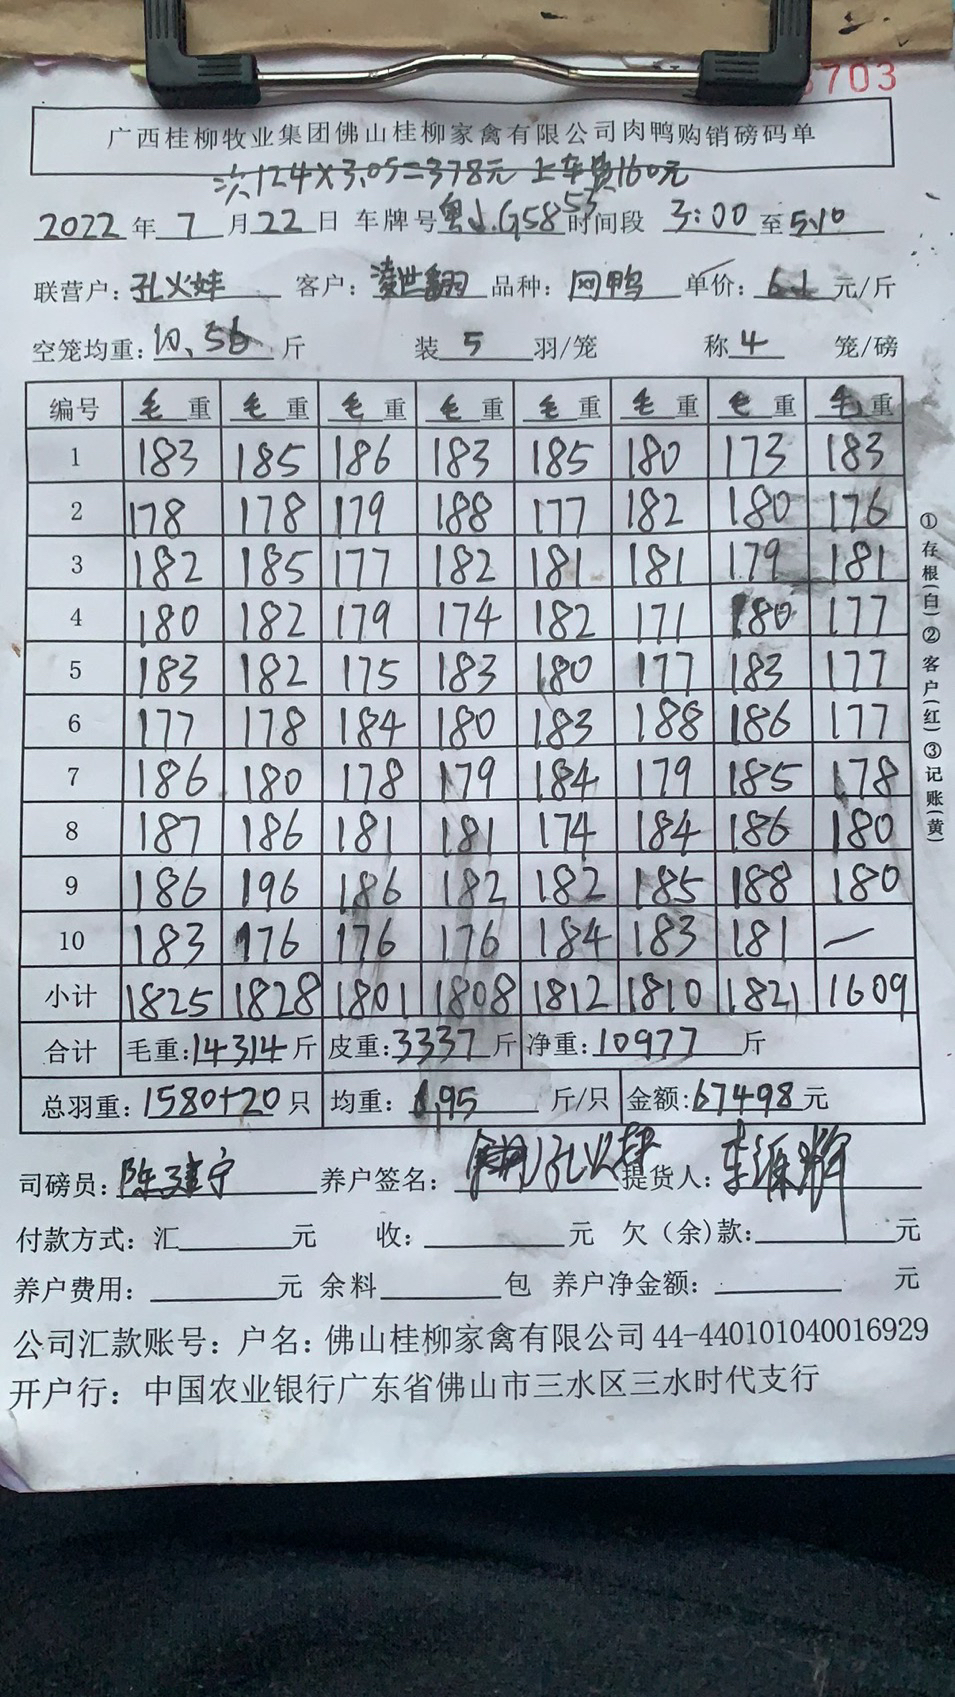 703
广西桂柳牧业集团佛山桂柳家禽有限公司肉鸭购销磅码单
次124×3.05=378元 上车费160元
2022年7月22日 车牌号 G5853 时间段 3:00至5:10
联营户: 孔火 客户: 品种: 鸭 单价: 元/斤
空笼均重: 10.56斤 装5羽/笼 称4笼/磅
编号 毛重 毛重 毛重 毛重 毛重 毛重 毛重 毛重
1 183 185 186 183 185 180 173 183
2 178 178 179 188 177 182 180 176
3 182 185 177 182 181 181 179 181
4 180 182 179 174 182 171 180 177
5 183 182 175 183 180 177 183 177
6 177 178 184 180 183 188 186 177
7 186 180 178 179 184 179 185 178
8 187 186 181 181 174 184 186 180
9 186 196 186 182 182 185 188 180
10 183 176 176 176 184 183 181 —
小计 1825 1828 1801 1808 1812 1810 1821 1609
合计 毛重:14314斤 皮重:3337斤 净重:10977斤
总羽重:1580+20只 均重:6.95斤/只 金额:67498元
司磅员: 陈建宁 养户签名: 孔火 提货人: 李源辉
付款方式:汇 元 收: 元 欠(余)款: 元
养户费用: 元 余料 包 养户净金额: 元
公司汇款账号:户名:佛山桂柳家禽有限公司 44-440101040016929
开户行:中国农业银行广东省佛山市三水区三水时代支行
①存根(白)②客户(红)③记账(黄)